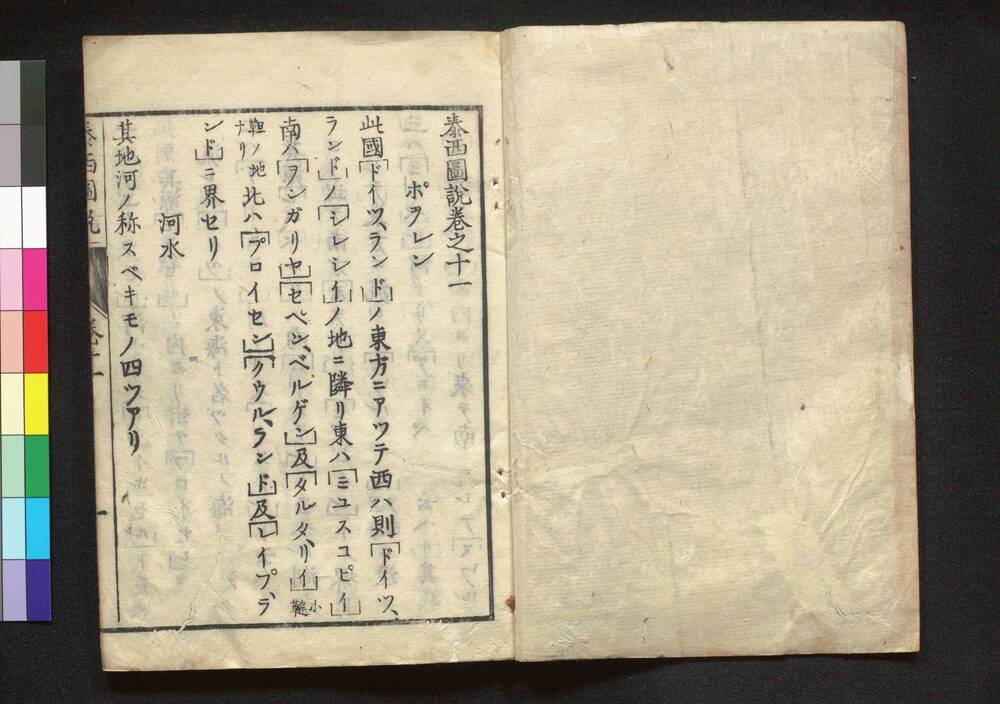 泰西圖説巻之十一
ポヲレン
此國「ドイツ、ランド」ノ東方ニアツテ西ハ則「ドイツ、
ランド」ノ「シレシイ」ノ地ニ隣リ東ハ「ミユスコビイ」
南ハ「ヲンガリヤ」「セベン、ベルゲン」及「タルタリイ」小韃
靼ノ地ナリ北ハ「プロイセン」「クウル、ランド」及「レイフラ
ンド」ニ界セリ
河水
其地河ノ称スベキモノ四ツアリ
泰西圖説
巻十一